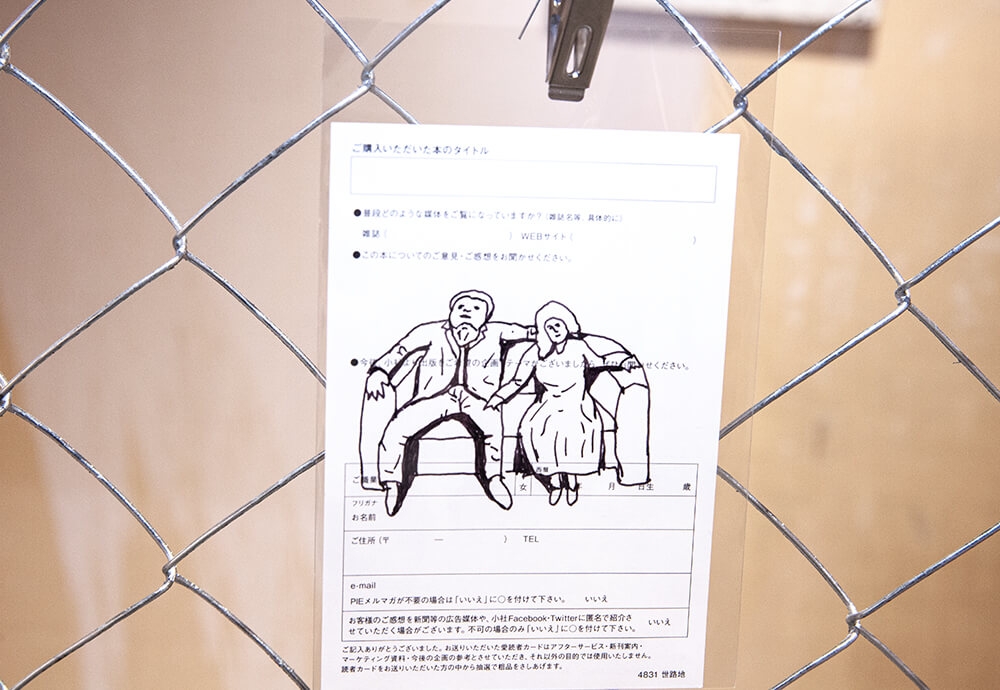 ご購入いただいた本のタイトル
●普段どのような媒体をご覧になっていますか?(雑誌名等、具体的に)
雑誌( ) WEBサイト( )
●この本についてのご意見・ご感想をお聞かせください。
●今後、小社 出版を 企画・テーマがございましたら、 せください。
ご職業 女 西暦 月 日生 歳
フリガナ
お名前
ご住所(〒 ― ) TEL
e-mail
PIEメルマガが不要の場合は「いいえ」に○を付けて下さい。 いいえ
お客様のご感想を新聞等の広告媒体や、小社Facebook・Twitterに匿名で紹介さ
せていただく場合がございます。不可の場合のみ「いいえ」に○を付けて下さい。 いいえ
ご記入ありがとうございました。お送りいただいた愛読者カードはアフターサービス・新刊案内・
マーケティング資料・今後の企画の参考とさせていただき、それ以外の目的では使用いたしません。
読者カードをお送りいただいた方の中から抽選で粗品をさしあげます。
4831 世路地